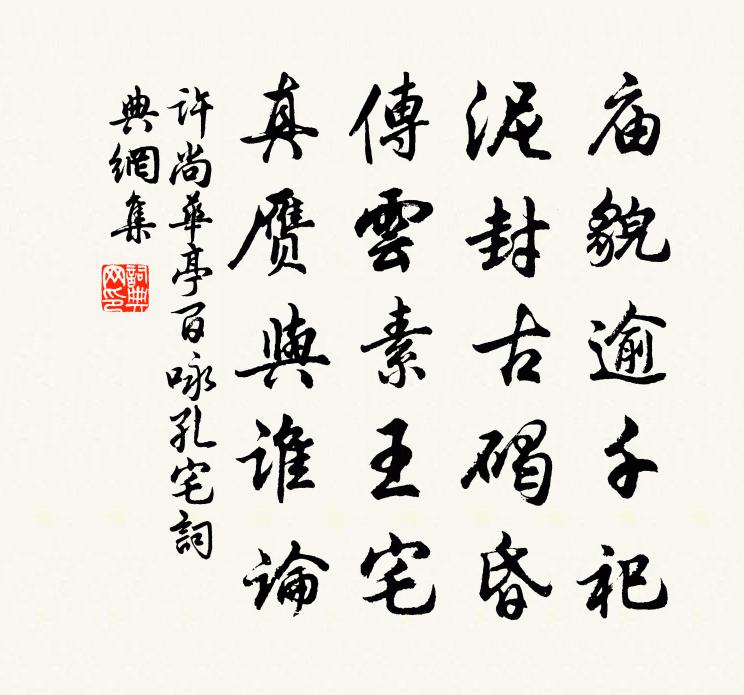 庙貌逾千祀
泥封古碣昏
傳雲素王宅
真赝與誰論
許尚華亭百咏孔宅詞
典網集
詞典网印